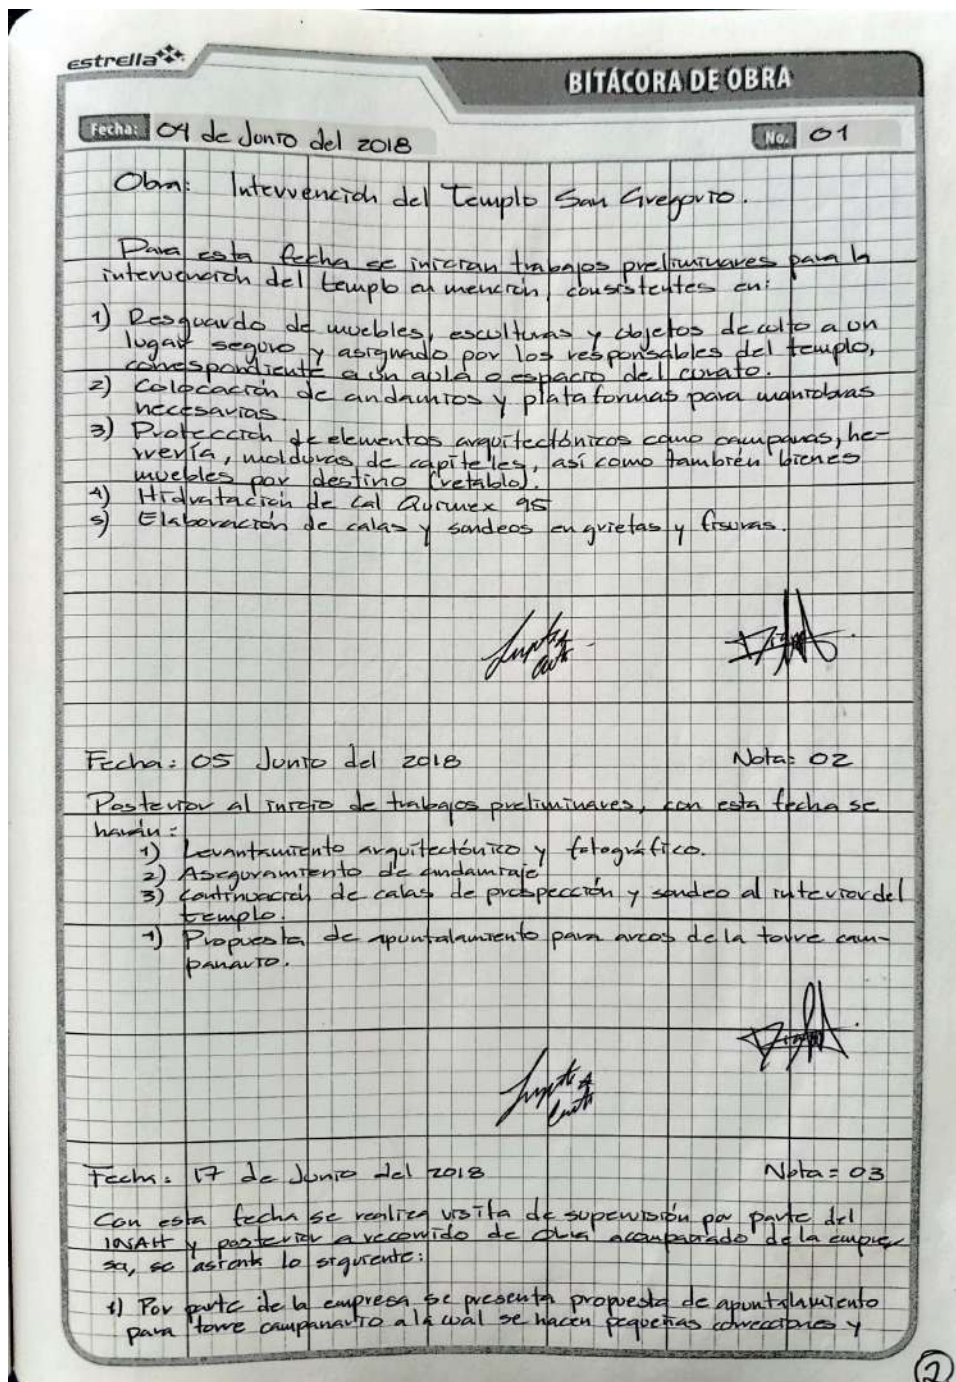 estrella
BITÁCORA DE OBRA
Fecha: 04 de Junio del 2018
No. 01
Obra: Intervención del Templo San Gregorio.
Para esta fecha se inician trabajos preliminares para la
intervención del templo en mención, consistentes en:
1) Resguardo de muebles, esculturas y objetos de culto a un
lugar seguro y asignado por los responsables del templo,
correspondiente a un aula o espacio del curato.
2) Colocación de andamios y plataformas para maniobras
necesarias.
3) Protección de elementos arquitectónicos como campanas, he-
rrería, molduras de capiteles, así como también bienes
muebles por destino (retablo).
4) Hidratación de Cal Quimex 95
5) Elaboración de calas y sondeos en grietas y fisuras.
Fecha: 05 Junio del 2018
Nota: 02
Posterior al inicio de trabajos preliminares, con esta fecha se
harán:
1) Levantamiento arquitectónico y fotográfico.
2) Aseguramiento de andamiaje
3) Continuación de calas de prospección y sondeo al interior del
templo.
4) Propuesta de apuntalamiento para arcos de la torre cam-
panario.
Fecha: 17 de Junio del 2018
Nota = 03
Con esta fecha se realiza visita de supervisión por parte del
INAH y posterior a recorrido de obra acompañado de la empre
sa, se asienta lo siguiente:
1) Por parte de la empresa se presenta propuesta de apuntalamiento
para torre campanario a la cual se hacen pequeñas correcciones y
2